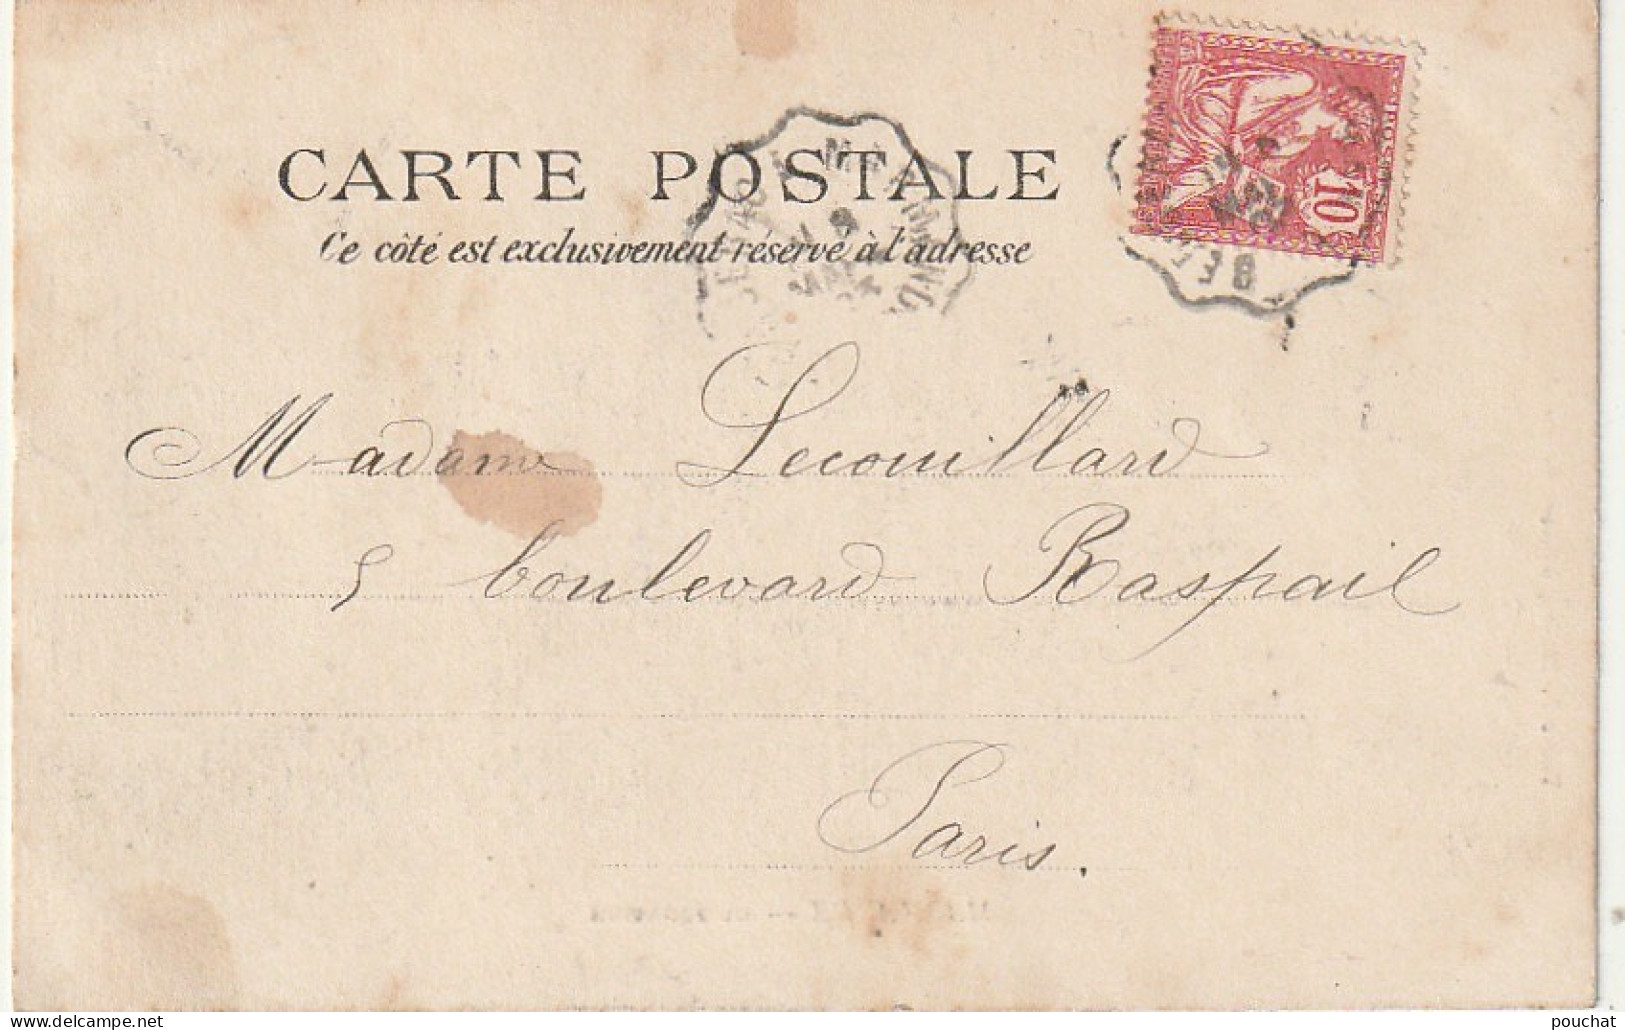 CARTE POSTALE
Ce côté est exclusivement réservé à l'adresse
10
Madame Lecouillard
5 boulevard Raspail
Paris.
www.delcampe.net
pouchat